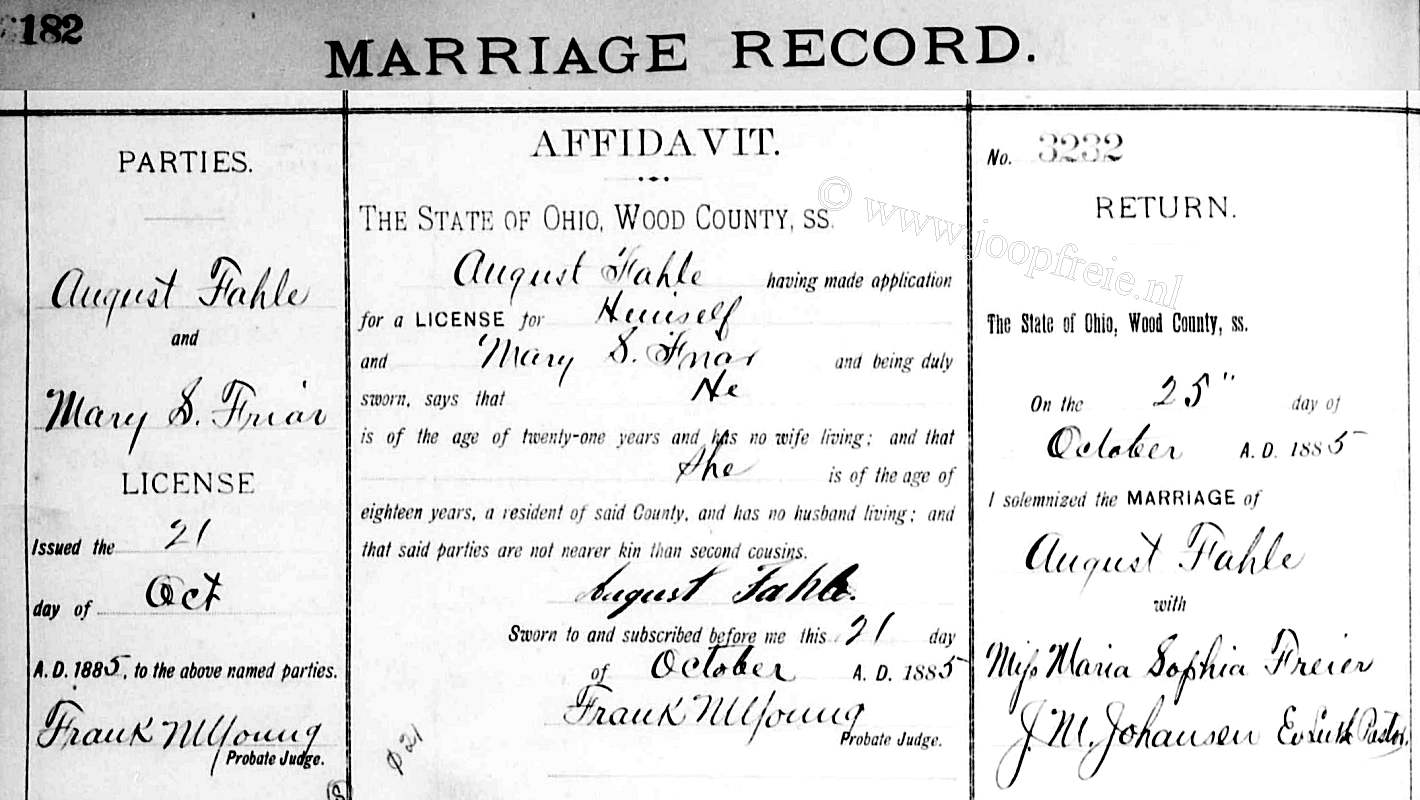 182
MARRIAGE RECORD.
PARTIES.
August Fahle
and
Mary S. Friar
LICENSE
Issued the 21
day of Oct
A. D. 1885, to the above named parties.
Frank M Young
Probate Judge.
AFFIDAVIT.
THE STATE OF OHIO, WOOD COUNTY, SS.
August Fahle having made application
for a LICENSE for Himself
and Mary S. Friar and being duly
sworn, says that He
is of the age of twenty-one years and has no wife living; and that
She is of the age of
eighteen years, a resident of said County, and has no husband living; and
that said parties are not nearer kin than second cousins.
August Fahle.
Sworn to and subscribed before me this 21 day
of October A. D. 1885
Frank M Young
Probate Judge.
p 21
No. 3232
RETURN.
The State of Ohio, Wood County, ss.
On the 25" day of
October A. D. 1885
I solemnized the MARRIAGE of
August Fahle
with
Miss Maria Sophia Freier
J. M. Johansen Ev Luth Pastor.
© www.joopfreie.nl